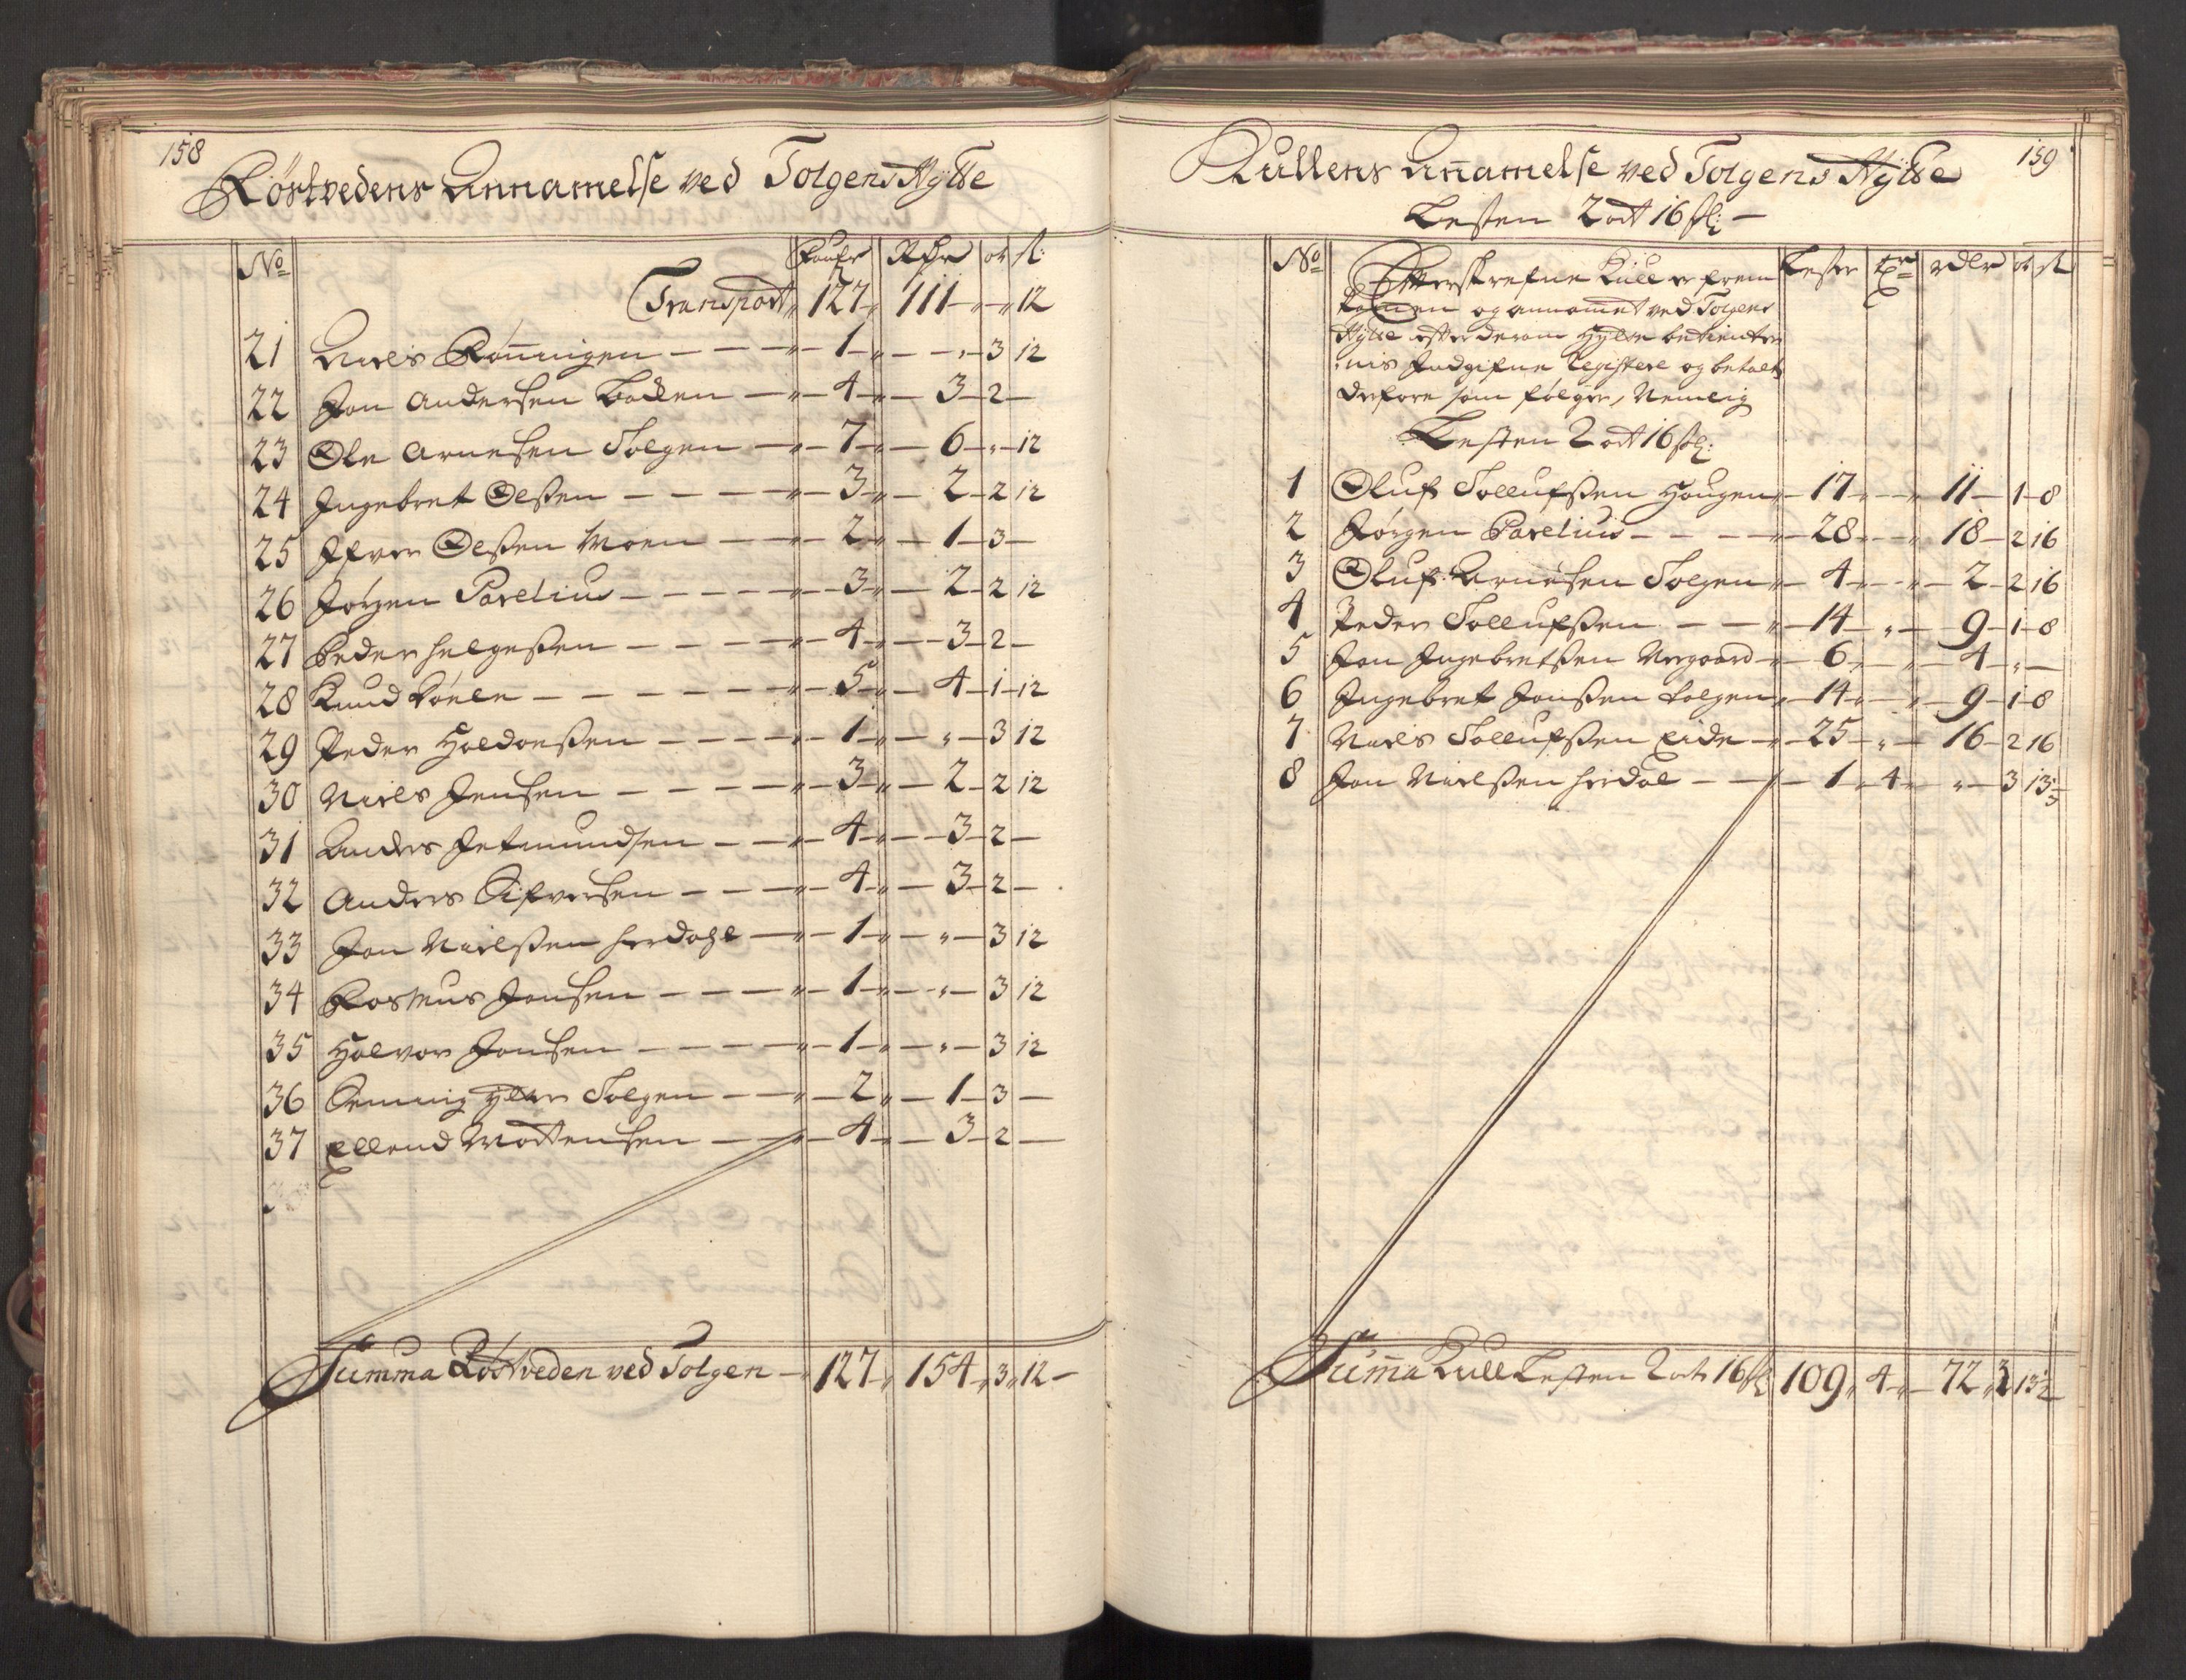 158
Röstvedens Annamelse ved Tolgens Hytte
No Faufr Rdr ort sl:
Transport 127 111 " 12
21 Niels Rönningen 1 " 3 12
22 Jon Andersen 4 3 2
23 Ole Arnesen Tolgen 7 6 " 12
24 Ingebret Olssen 3 2 2 12
25 Ifver Olssen Moen 2 1 3
26 Jörgen Parelius 3 2 2 12
27 Peder Helgessen 4 3 2
28 Knud 5 4 1 12
29 Peder Holdoessen 1 " 3 12
30 Niels Jensen 3 2 2 12
31 Anders Jetmundsen 4 3 2
32 Anders Sifversen 4 3 2
33 Jon Nielssen Herdahl 1 " 3 12
34 Rasmus Jonsen 1 " 3 12
35 Halvor Jonsen 1 " 3 12
36 Tolgen 2 1 3
37 Ellend Mortensen 4 3 2
Summa Röstveden ved Tolgen 127 154 3 12
159
Kullens Annamelse ved Tolgens Hytte
Lesten 2 ort 16 sl:
No Efterskrefne Kull er frem Lester Tr rdlr ort sl
kommen og annammet ved Tolgens
Hytte efter derom Hytte betienter
nis Indgifne Registere og betalt
derfore som fölger, Nemlig
Lesten 2 ort 16 sl:
1 Oluf Tollufssen Hougen 17 " 11 1 8
2 Jörgen Parelius 28 " 18 2 16
3 Oluf Arnesen Tolgen 4 " 2 2 16
4 Peder Tollufssen 14 " 9 1 8
5 Jon Ingebretssen Vergaard 6 " 4 "
6 Ingebret Jonssen Tolgen 14 " 9 1 8
7 Niels Tollufssen Eide 25 " 16 2 16
8 Jon Nielssen Herdal 1 4 " 3 13 1/3
Summa Kull Lesten 2 ort 16 sl 109 4 72 3 13 1/2